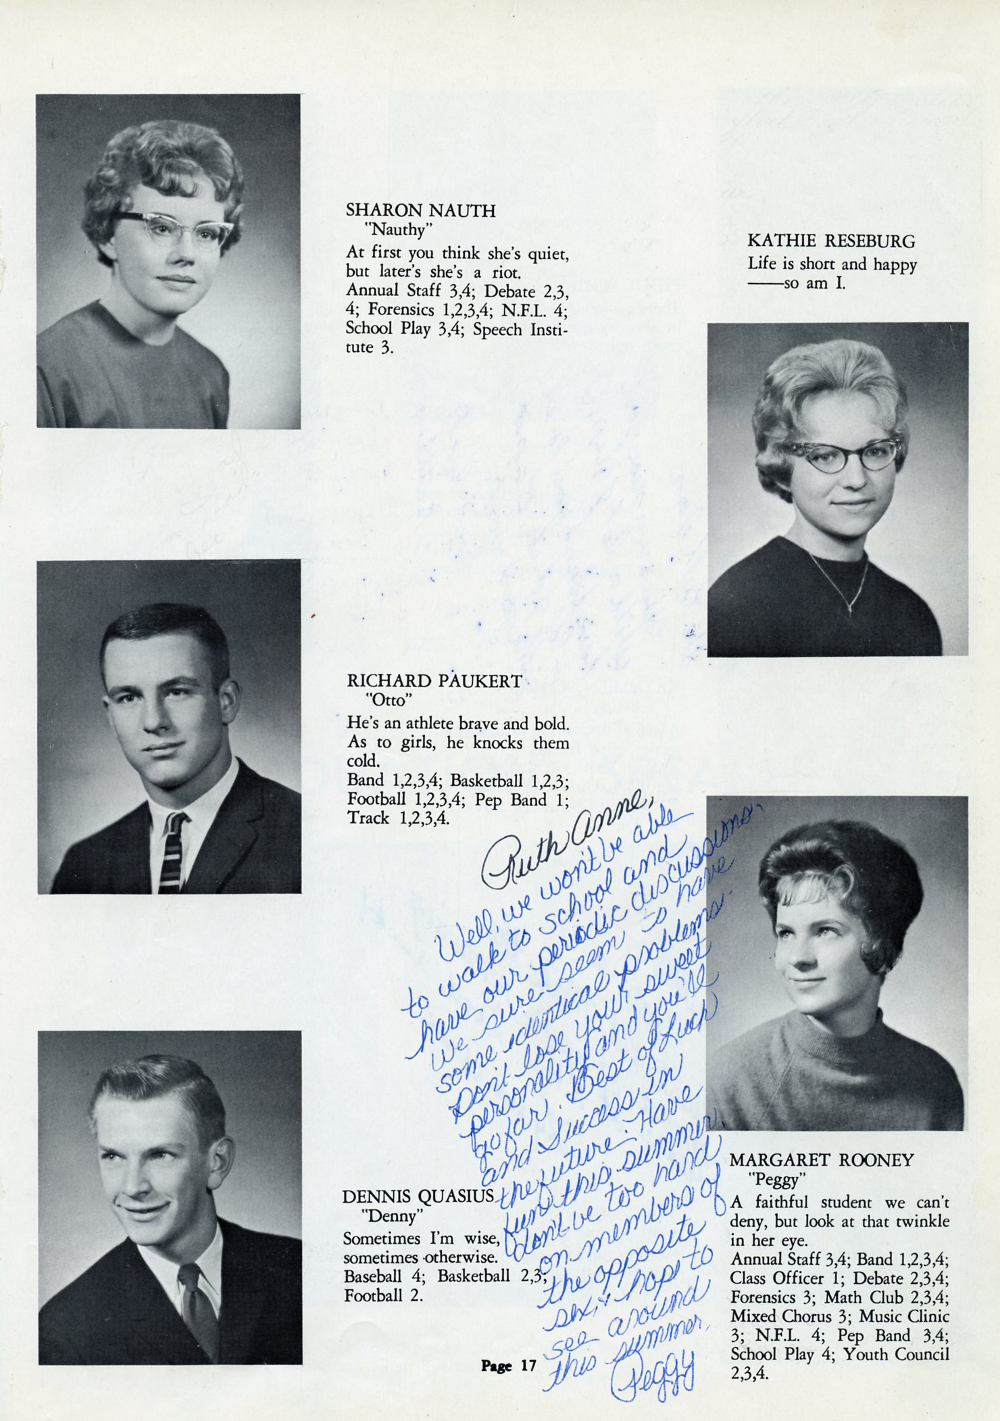 SHARON NAUTH
"Nauthy"
At first you think she's quiet,
but later's she's a riot.
Annual Staff 3,4; Debate 2,3,
4; Forensics 1,2,3,4; N.F.L. 4;
School Play 3,4; Speech Insti-
tute 3.
KATHIE RESEBURG
Life is short and happy
——so am I.
RICHARD PAUKERT
"Otto"
He's an athlete brave and bold.
As to girls, he knocks them
cold.
Band 1,2,3,4; Basketball 1,2,3;
Football 1,2,3,4; Pep Band 1;
Track 1,2,3,4.
Ruth Anne,
Well, we won't be able
to walk to school and
have our periodic discussions.
We sure seem to have
some identical problems.
Don't lose your sweet
personality and you'll
go far. Best of Luck
and Success in
the future. Have
fun this summer,
don't be too hard
on members of
the opposite
sex, & hope to
see around
this summer.
Peggy
DENNIS QUASIUS
"Denny"
Sometimes I'm wise,
sometimes otherwise.
Baseball 4; Basketball 2,3;
Football 2.
MARGARET ROONEY
"Peggy"
A faithful student we can't
deny, but look at that twinkle
in her eye.
Annual Staff 3,4; Band 1,2,3,4;
Class Officer 1; Debate 2,3,4;
Forensics 3; Math Club 2,3,4;
Mixed Chorus 3; Music Clinic
3; N.F.L. 4; Pep Band 3,4;
School Play 4; Youth Council
2,3,4.
Page 17